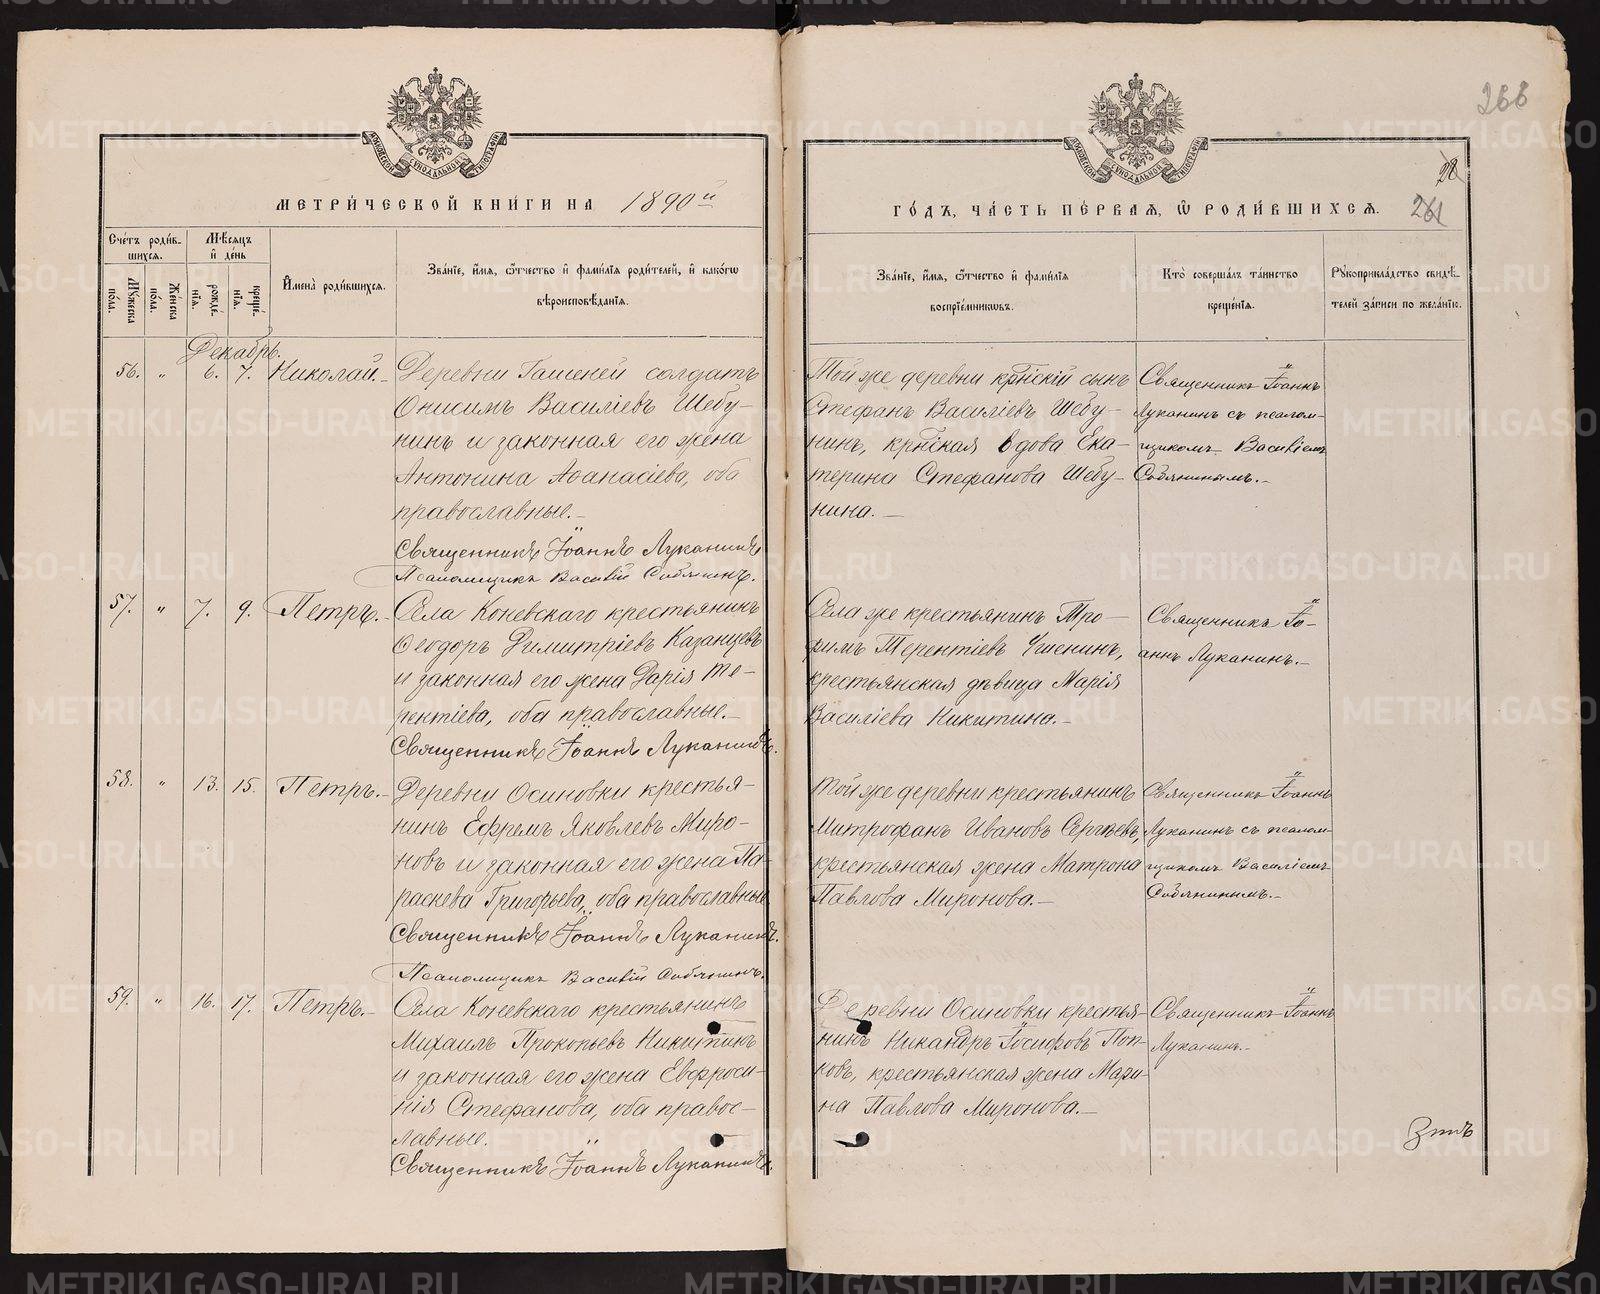 268
28
261
МОСКОВСКОЙ СѴНОДАЛЬНОЙ ТИПОГРАФІИ
МОСКОВСКОЙ СѴНОДАЛЬНОЙ ТИПОГРАФІИ
МЕТРИ́ЧЕСКОЙ КНИ́ГИ НА 1890й
ГО́ДЪ, ЧА́СТЬ ПЕ́РВАЯ, Ѽ РОДИ́ВШИХСЯ.
Сче́тъ роди́в-
шихся.
Мѣ́сяцъ
и҆ де́нь
Мꙋ́жеска по́ла.
Же́нска по́ла.
рожде́-нїя.
креще́-нїя.
И҆мена̀ роди́вшихся.
Зва́нїе, и҆́мя, ѻ҆́тчество и҆ фами́лїя роди́телей, и҆ како́гѡ
вѣроисповѣ́данїя.
Зва́нїе, и҆́мя, ѻ҆́тчество и҆ фами́лїя
воспрїе́мникѡвъ.
Кто̀ соверша́лъ та́инство
креще́нїя.
Рꙋкоприкла́дство свидѣ́-
телей за́писи по жела́нїю.
Декабрь.
56. „ 6. 7. Николай.- Деревни Гашеней солдатъ
Онисимъ Василіевъ Шебу-
нинъ и законная его жена
Антонина Аѳанасіева, оба
православные.-
Священникъ Іоаннъ Луканинъ
Псаломщикъ Василій Собянинъ.
Той же деревни крнскій сынъ
Стефанъ Василіевъ Шебу-
нинъ, крнская вдова Ека-
терина Стефанова Шебу-
нина.-
Священникъ Іоаннъ
Луканинъ съ псалом-
щикомъ Василіемъ
Собянинымъ.-
57. „ 7. 9. Петръ.- Села Коневскаго крестьянинъ
Ѳеодоръ Димитріевъ Казанцевъ
и законная его жена Дарія Те-
рентіева, оба православные.-
Священникъ Іоаннъ Луканинъ.
Села же крестьянинъ Тро-
фимъ Терентіевъ Ушенинъ,
крестьянская дѣвица Марія
Василіева Никитина.-
Священникъ Іо-
аннъ Луканинъ.-
58. „ 13. 15. Петръ.- Деревни Осиновки крестья-
нинъ Ефремъ Яковлевъ Миро-
новъ и законная его жена Па-
раскева Григорьева, оба православные.
Священникъ Іоаннъ Луканинъ.
Псаломщикъ Василій Собянинъ.
Той же деревни крестьянинъ
Митрофанъ Ивановъ Сергѣевъ,
крестьянская жена Матрона
Павлова Миронова.-
Священникъ Іоаннъ
Луканинъ съ псалом-
щикомъ Василіемъ
Собянинымъ.-
59. „ 16. 17. Петръ.- Села Коневскаго крестьянинъ
Михаилъ Прокопьевъ Никитинъ
и законная его жена Евфроси-
нія Стефанова, оба правос-
лавные.
Священникъ Іоаннъ Луканинъ.
Деревни Осиновки крестья-
нинъ Никандръ Іосифовъ Поп-
ковъ, крестьянская жена Мари-
на Павлова Миронова.-
Священникъ Іоаннъ
Луканинъ.-
METRIKI.GASO-URAL.RU